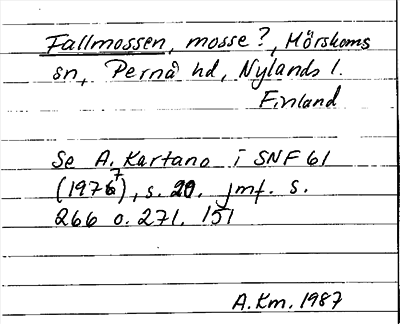 Fallmossen, mosse?, Mörskoms
sn, Pernå hd, Nylands l.
Finland
Se A. Kartano i SNF 61
(1977), s. 20. jmf. s.
266 o. 271. 151
A.Km. 1987